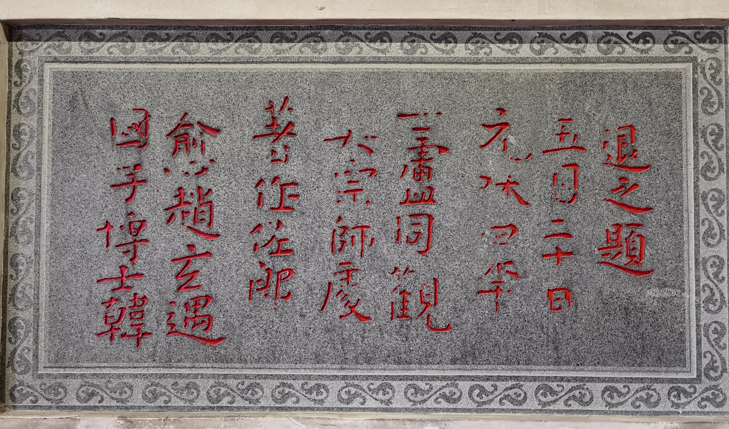 國子博士韓
愈趙玄遇
著作佐郎
樊宗師處
士盧同觀
元和四年
五月二十日
退之題